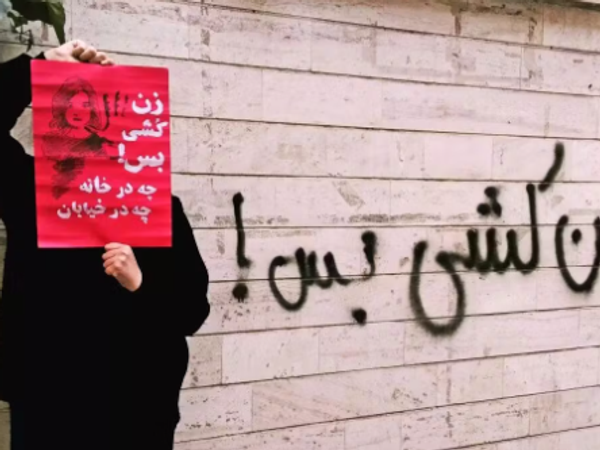 زن
کشی
بس!
چه در خانه
چه در خیابان
ن کُشی بس!